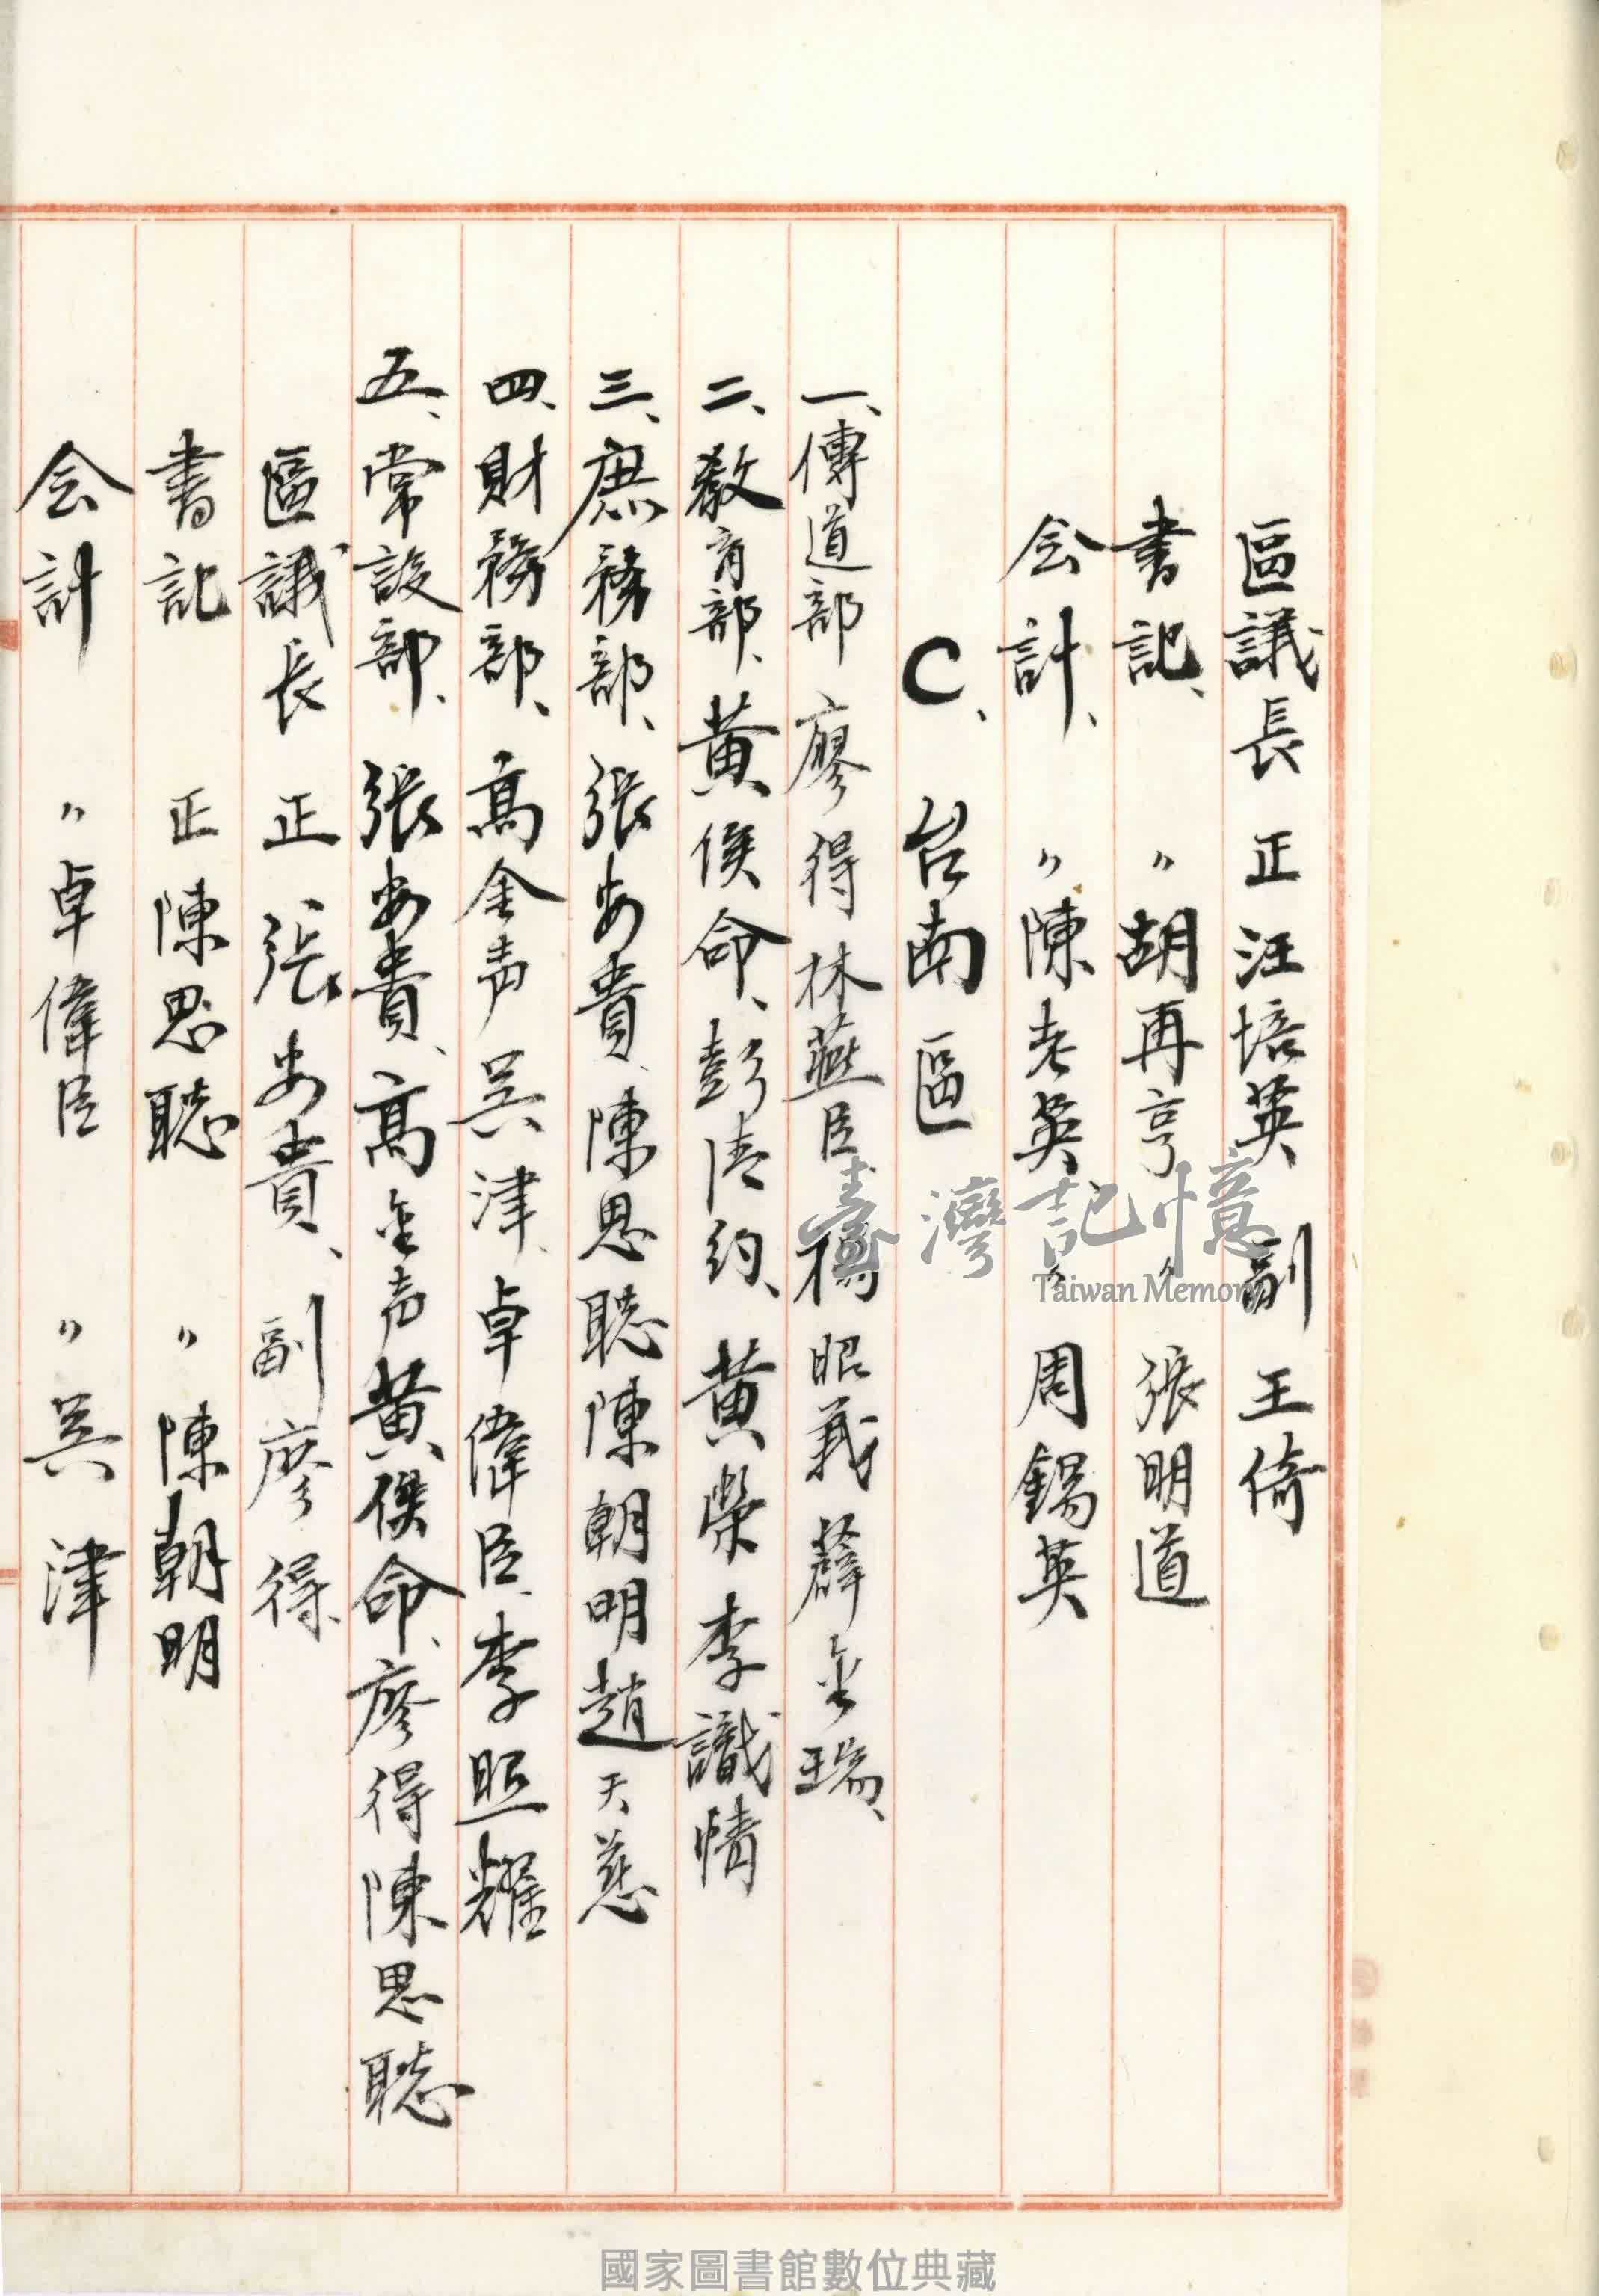 區議長 正 汪培英 副 王倚
書記、 〃 胡再亨 〃 張明道
会計、 〃 陳老英 〃 周錫英
C、 台南區
一、傳道部 廖得 林燕臣 楊昭義 薛金瑞、
二、教育部、黃俟命、彭清約、黃榮 李識情
三、庶務部、張安貴、陳思聰 陳朝明 趙天慈
四、財務部、高金声 吴津、卓偉臣、李照耀
五、常設部、張安貴、高金声 黃俟命、廖得 陳思聰
區議長 正 張安貴、副 廖得
書記 正 陳思聰 〃 陳朝明
会計 〃 卓偉臣 〃 吴津
臺灣記憶
Taiwan Memory
國家圖書館數位典藏